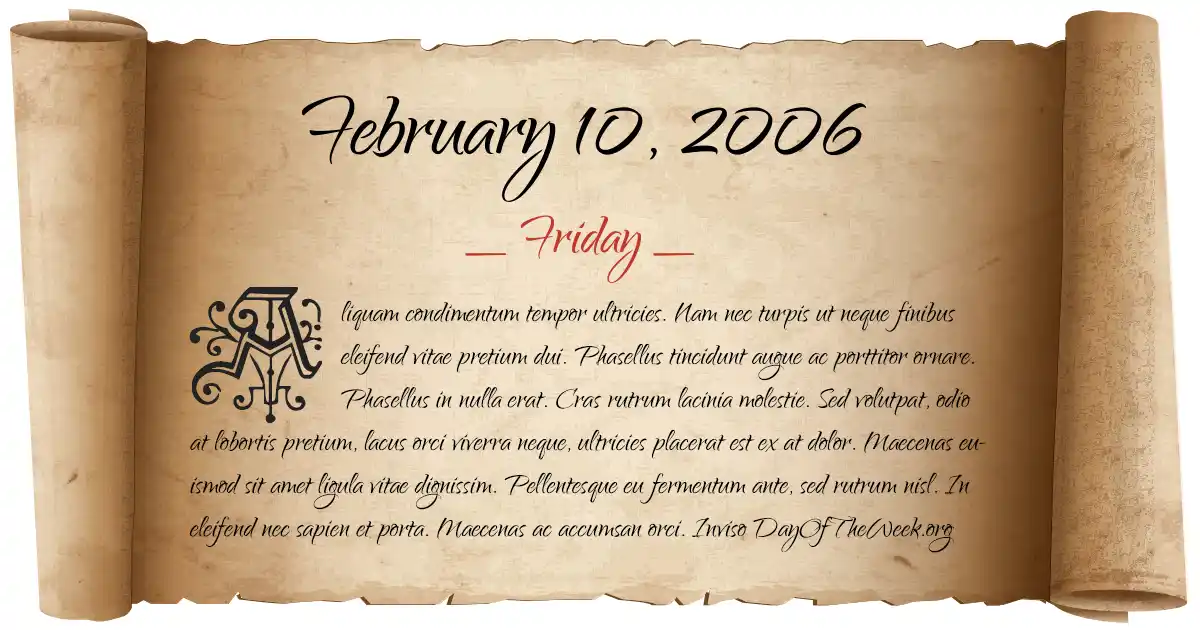 February 10, 2006
— Friday —
Aliquam condimentum tempor ultricies. Nam nec turpis ut neque finibus
eleifend vitae pretium dui. Phasellus tincidunt augue ac porttitor ornare.
Phasellus in nulla erat. Cras rutrum lacinia molestie. Sed volutpat, odio
at lobortis pretium, lacus orci viverra neque, ultricies placerat est ex at dolor. Maecenas eu-
ismod sit amet ligula vitae dignissim. Pellentesque eu fermentum ante, sed rutrum nisl. In
eleifend nec sapien et porta. Maecenas ac accumsan orci. Inviso DayOfTheWeek.org